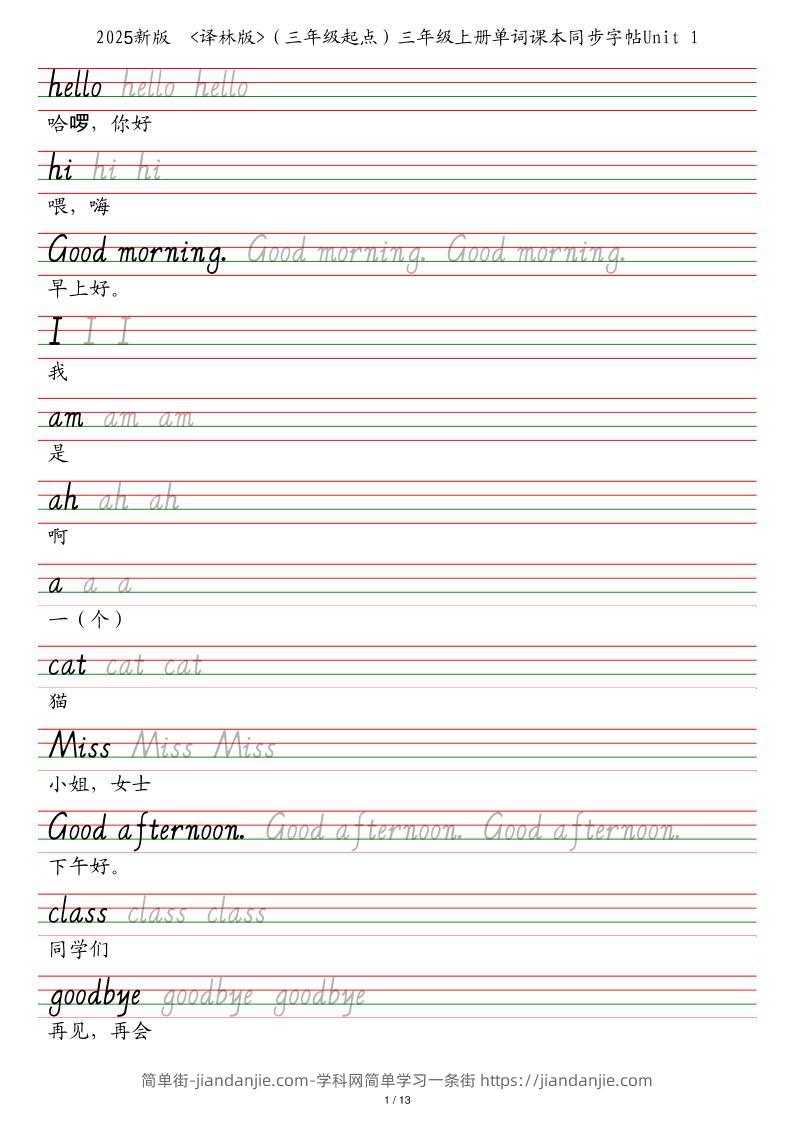 2025新版 <译林版>（三年级起点）三年级上册单词课本同步字帖Unit 1
hello hello hello
哈啰，你好
hi hi hi
喂，嗨
Good morning. Good morning. Good morning.
早上好。
I I I
我
am am am
是
ah ah ah
啊
a a a
一（个）
cat cat cat
猫
Miss Miss Miss
小姐，女士
Good afternoon. Good afternoon. Good afternoon.
下午好。
class class class
同学们
goodbye goodbye goodbye
再见，再会
简单街-jiandanjie.com-学科网简单学习一条街 https://jiandanjie.com
1 / 13